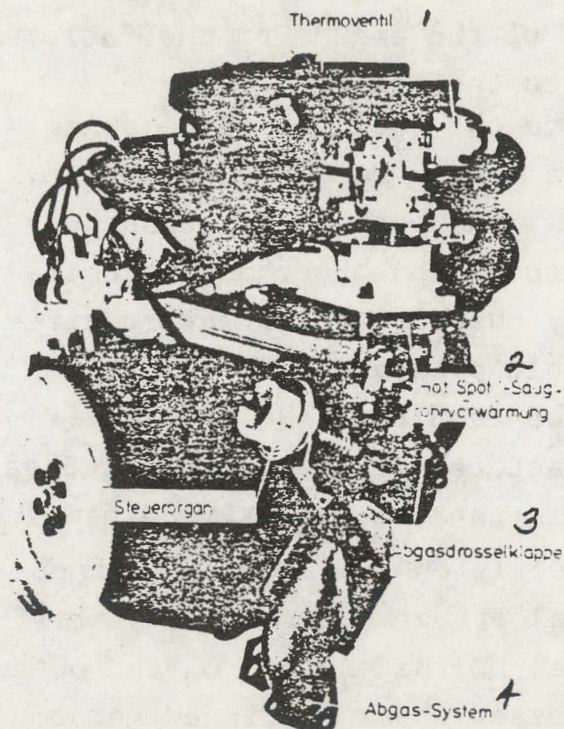 Thermoventil 1
2
Hot Spot"-Saug-
rohrverwärmung
Steuerorgan
3
Abgasdrosselklappe
Abgas-System 4